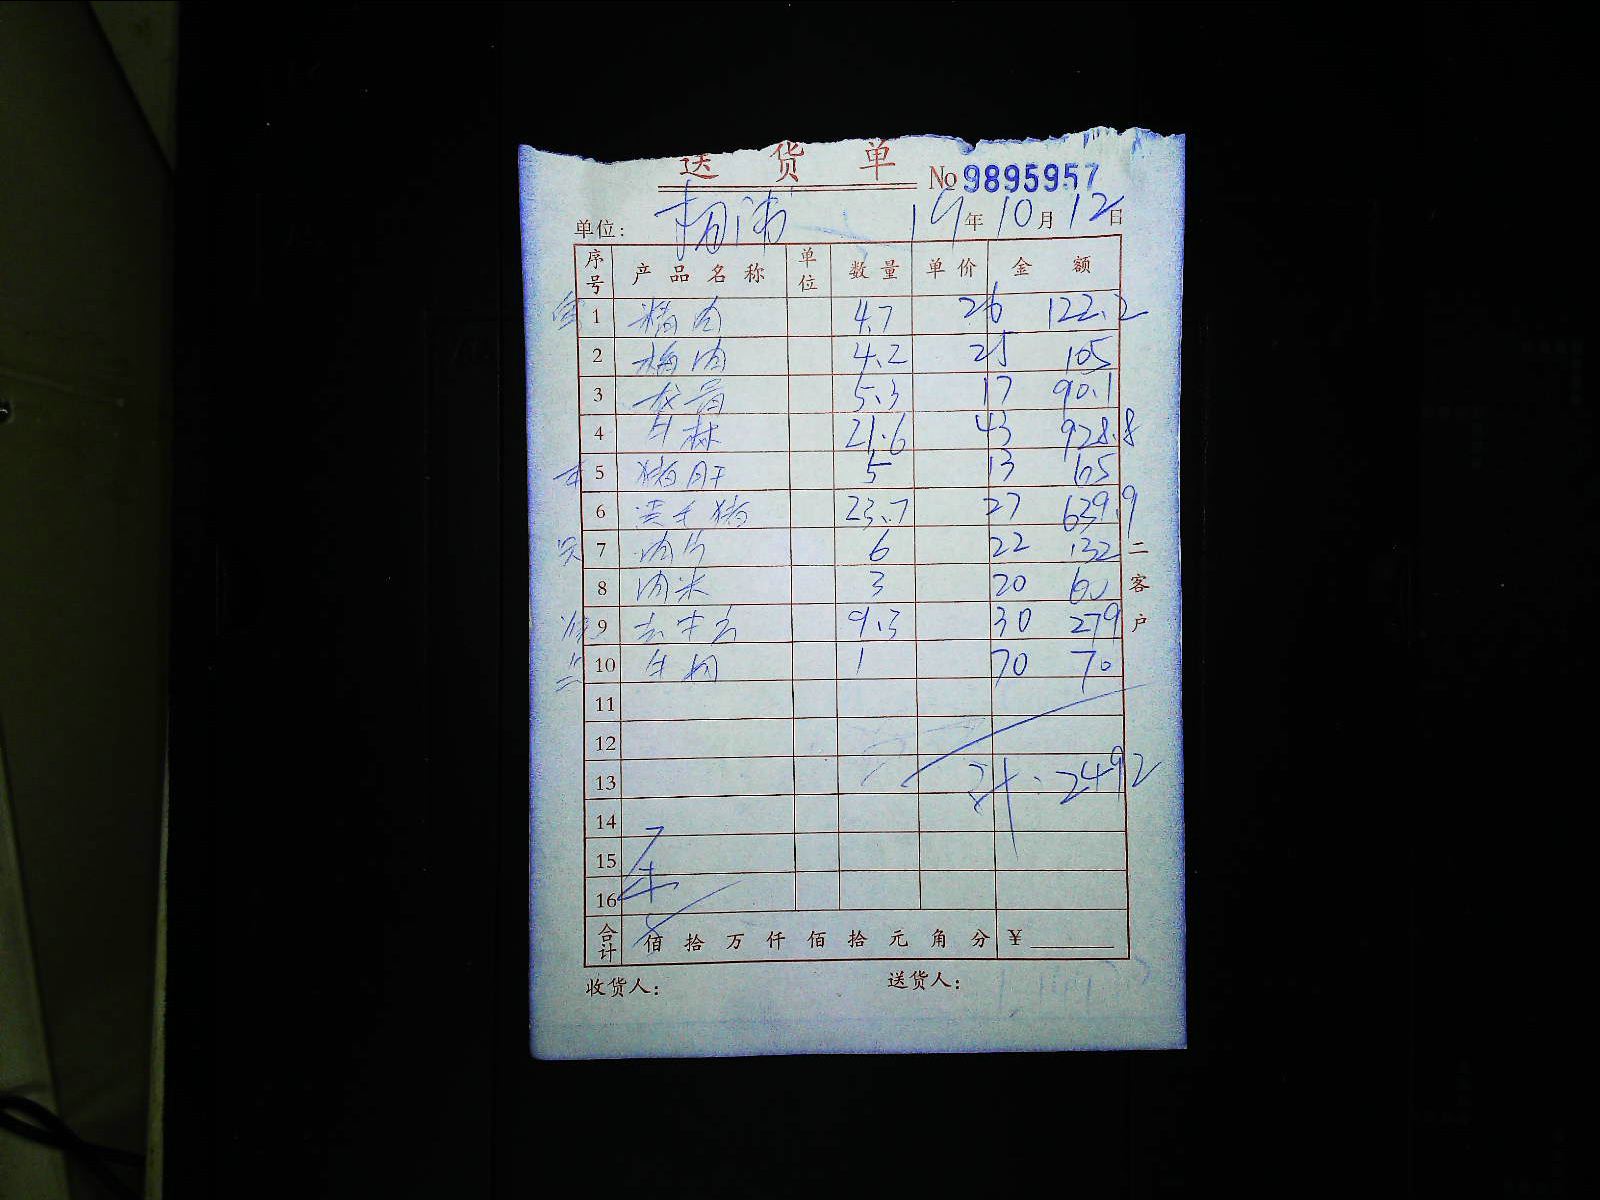 送货单
No 9895957
单位: 19年10月12日
序号 产品名称 单位 数量 单价 金额
1 精肉 4.7 26 122.2
2 梅肉 4.2 25 105
3 龙骨 5.3 17 90.1
4 牛林 21.6 43 928.8
5 猪肝 5 13 65
6 23.7 27 639.9
7 肉片 6 22 132
8 肉米 3 20 60
9 9.3 30 279
10 牛肉 1 70 70
11
12
13 计:2492
14
15
16
合计 佰拾万仟佰拾元角分 ¥
收货人: 送货人:
二客户